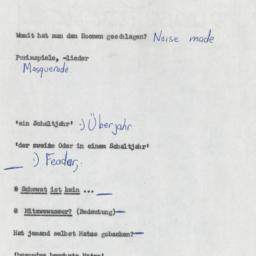 Womit hat man den Hoomen geschlagen? Noise made
Purimspiele, -lieder
Masquerade.
'ein Schaltjahr' :) Überjahr
'der zweite Oder in einem Schaltjahr'
:) Feador,
@ Schewat ist kein ...
@ Mitzwewasser? (Bedeutung)
Hat jemand selbst Matse gebacken?